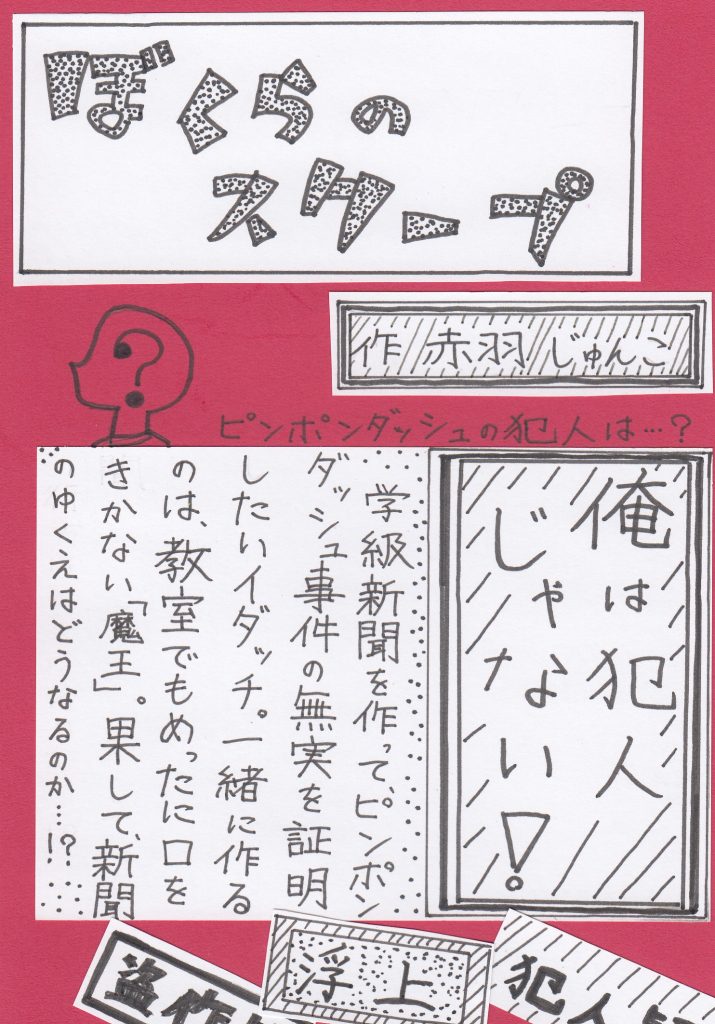 ぼくらの
スクープ
作 赤羽 じゅんこ
ピンポンダッシュの犯人は…?
俺は犯人
じゃない!
学級新聞を作って、ピンポン
ダッシュ事件の無実を証明
したいイダッチ。一緒に作る
のは、教室でもめったに口を
きかない「魔王」。果して、新聞
のゆくえはどうなるのか…!?
盗作
浮上
犯人